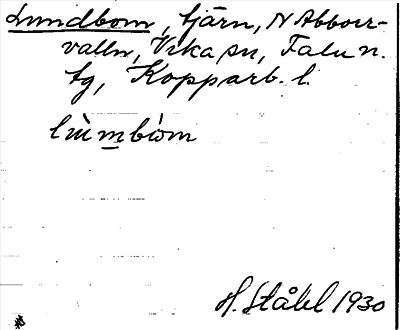 Lundbom, tjärn, N Abborr-
valln, Vika sn, Falu n.
tg, Kopparb. l.
H. Ståhl 1930